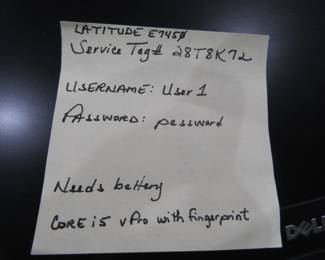 LATITUDE E7450
Service Tag# 28T8K72
USERNAME: User 1
PASSWORD: password
Needs battery
CORE i5 vPro with Fingerprint
DELL